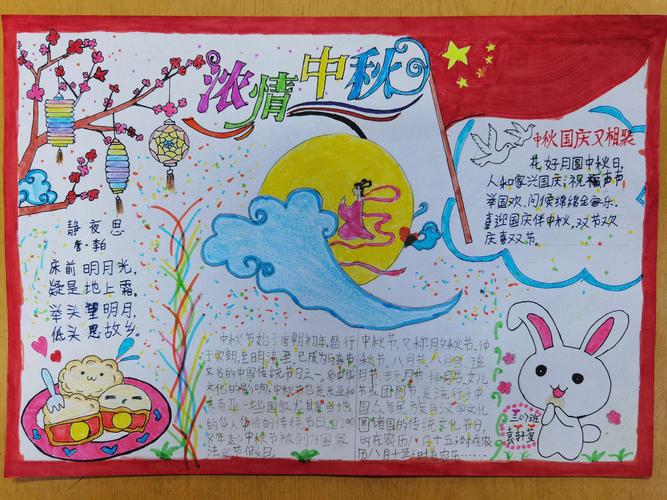 浓情中秋
中秋国庆又相聚
花好月圆中秋日,
人和家兴国庆;祝福声声
举国欢,问候绵绵全家乐,
喜迎国庆伴中秋,双节欢
庆喜双节。
静夜思
唐·李白
床前明月光,
疑是地上霜。
举头望明月,
低头思故乡。
中秋节始于唐朝初年,盛行
于宋朝,至明清
名的中国传统节日之一。
文化的影响,中秋节也是东亚和
东南亚一些国家尤其是当地
的华人华侨的传统节日。
年起中秋节被列为国家
法定节假日。
中秋节又称月夕、秋节、仲
秋节、八月节、八月会、追
月节、玩月节、拜月节、女儿
节或团圆节,是流行于中
国众多民族与汉字文化
圈诸国的传统文化节日,
时在农历八月十五;时在农
历八月十五;时在农乐……
三(7)班
袁轩萱